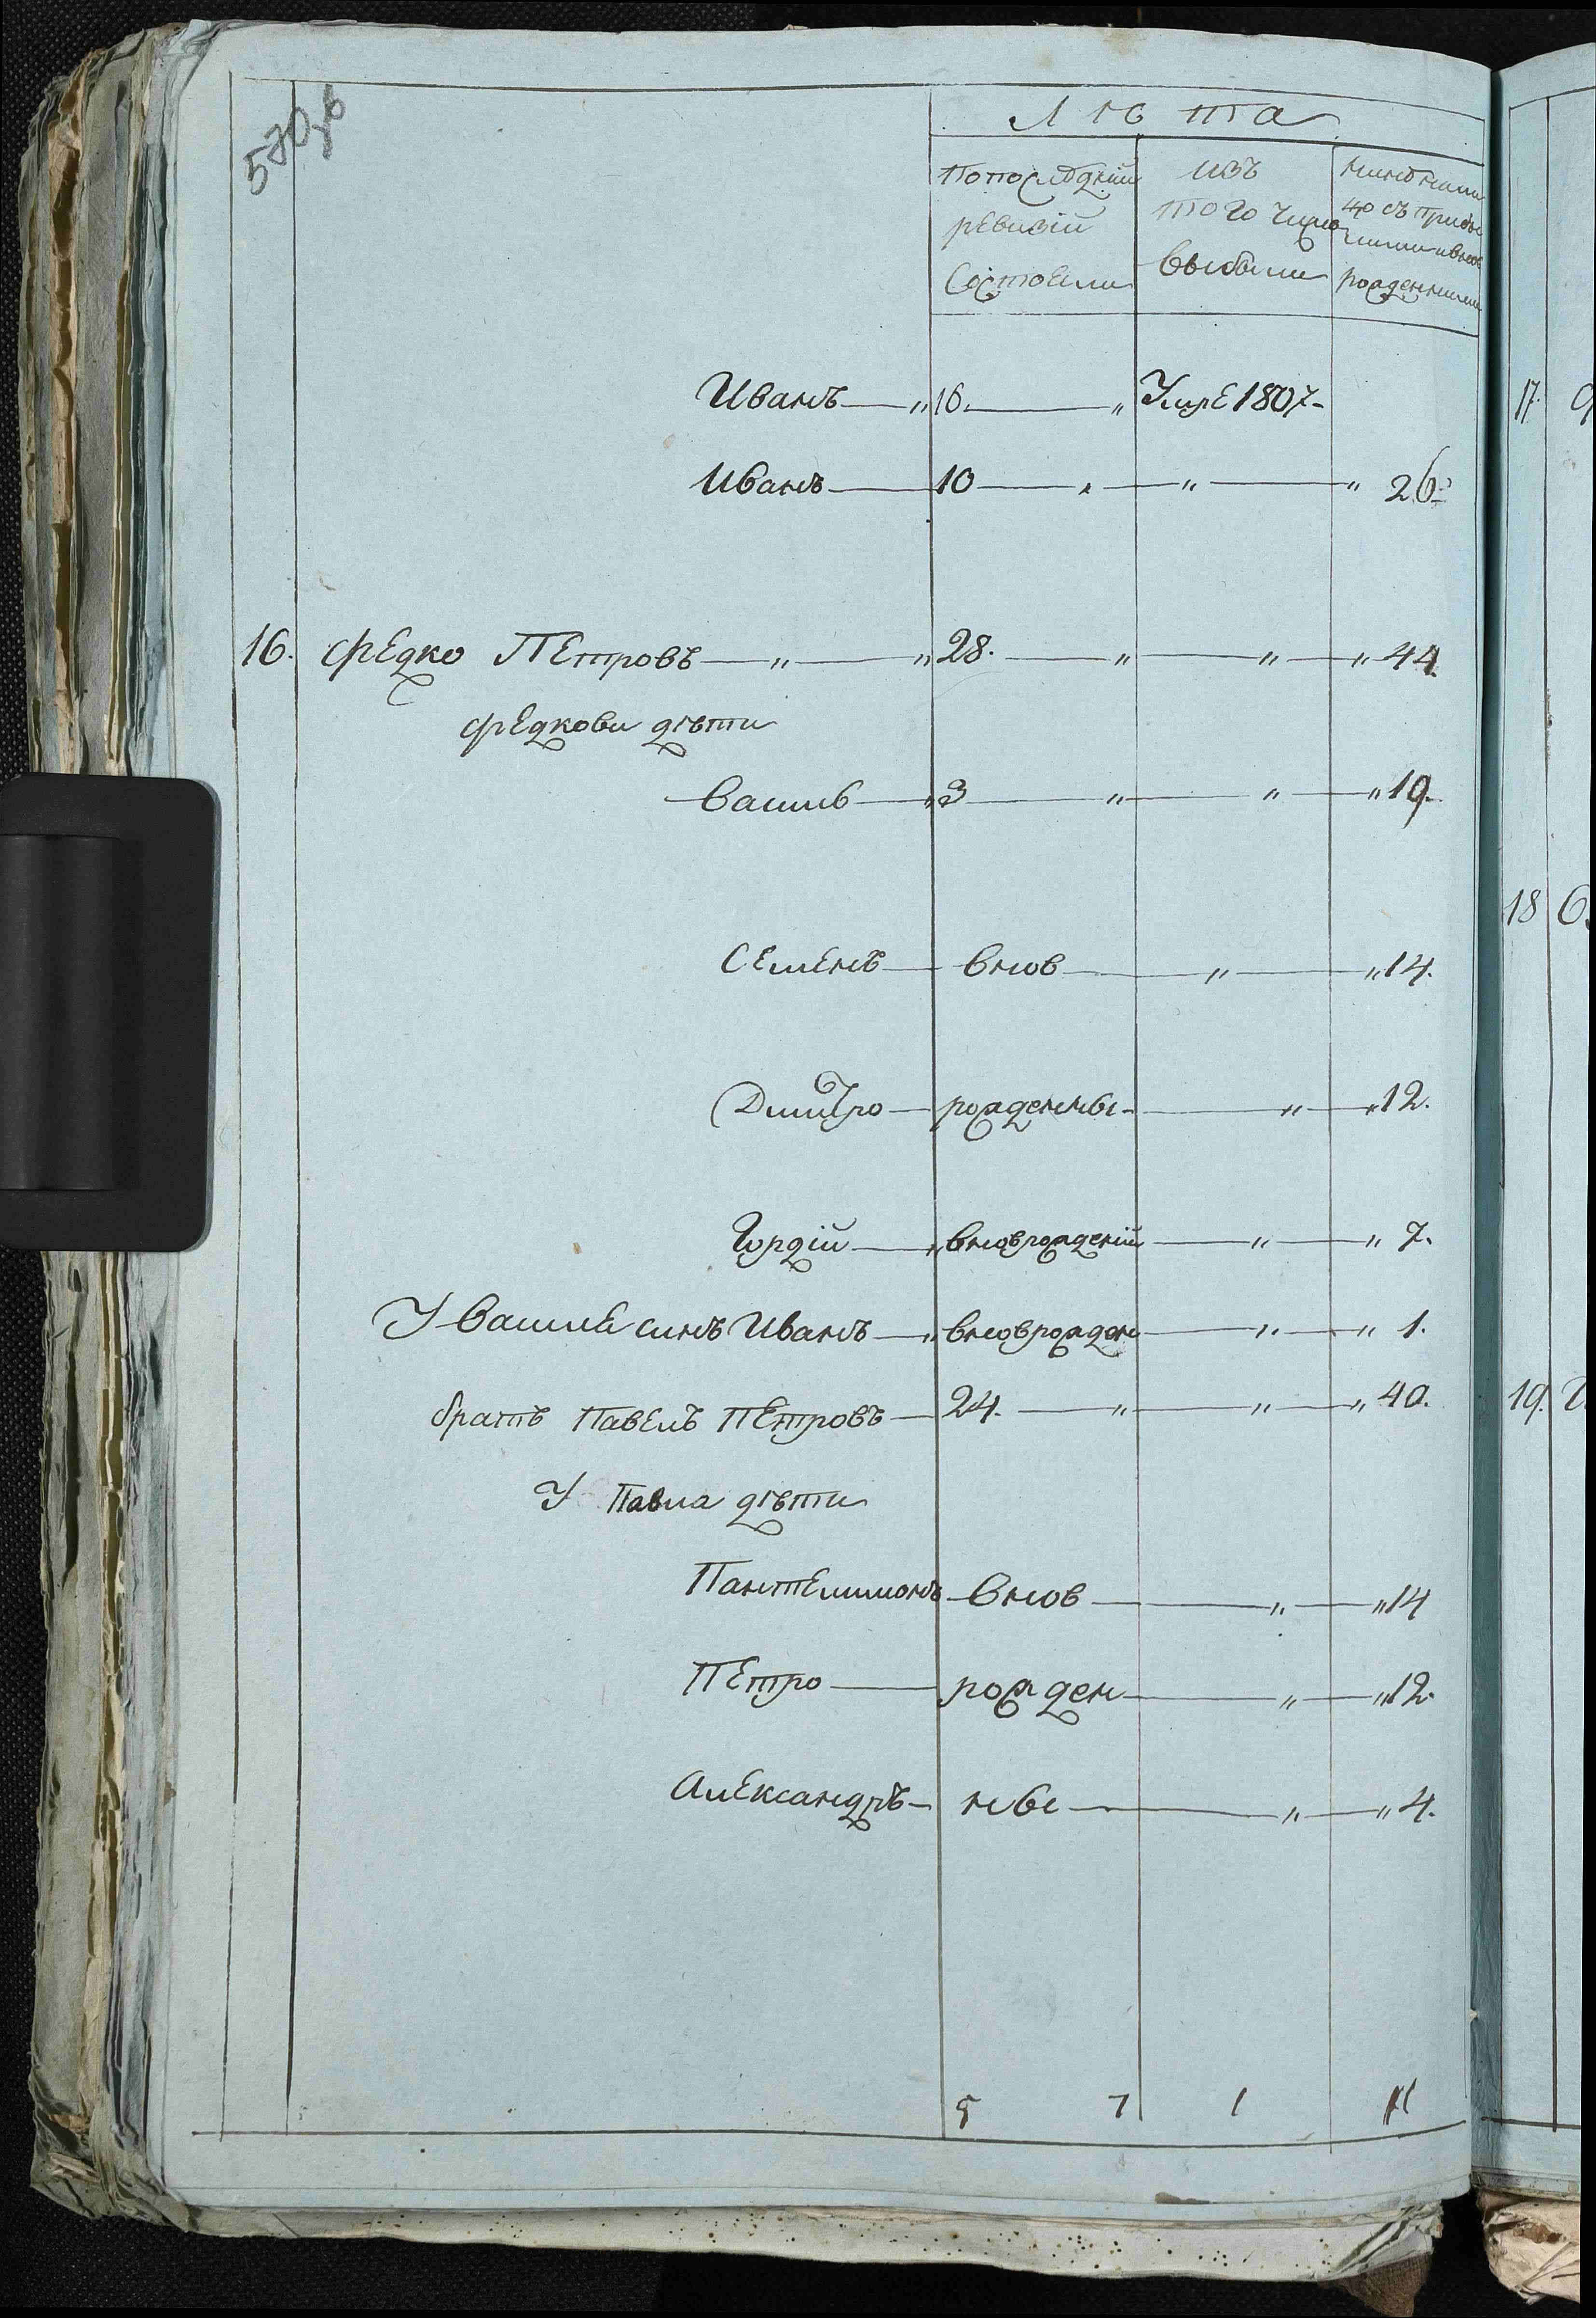 570 об
Лѣта
По последній ревизіи состоели
изъ того числа выбыли
нинѣ нали цо съ прибы лими и внов рожденними
Иванъ 16. Умре 1807
Иванъ 10 26
16. Федко Петровъ 28. 44.
Федкови дѣти
Васил 3 19.
Семенъ внов 14.
Дмитро рожденны 12.
Гордій вновророжденій 7.
У Василя синъ Иванъ вноврожден 1.
братъ Павелъ Петровъ 24. 40.
У Павла дѣти
Пантелимонъ внов 14
Петро рожден 12.
Александръ ны 4.
5 7 1 11
17.
18
19.